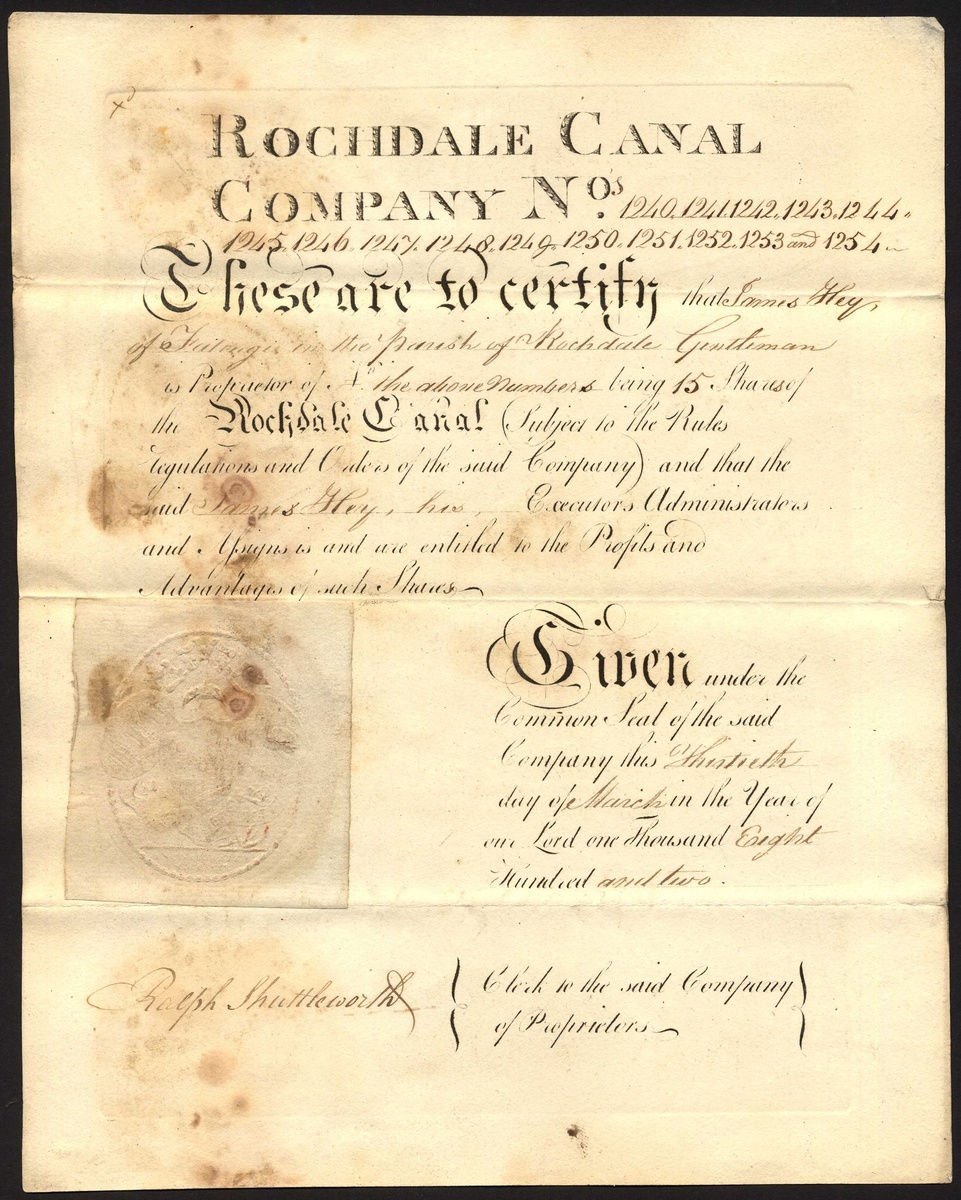 ROCHDALE CANAL
COMPANY Nos. 1240, 1241, 1242, 1243, 1244,
1245, 1246, 1247, 1248, 1249, 1250, 1251, 1252, 1253 and 1254
These are to certify that James Hey,
of in the parish of Rochdale Gentleman
is Proprietor of No. the above Numbers being 15 Shares of
the Rochdale Canal (Subject to the Rules
regulations and Orders of the said Company) and that the
said James Hey, his, Executors Administrators
and Assigns is and are entitled to the Profits and
Advantages of such Shares
Given under the
Common Seal of the said
Company this Thirtieth
day of March in the Year of
our Lord one Thousand Eight
Hundred and two.
Ralph Shuttleworth
Clerk to the said Company
of Proprietors